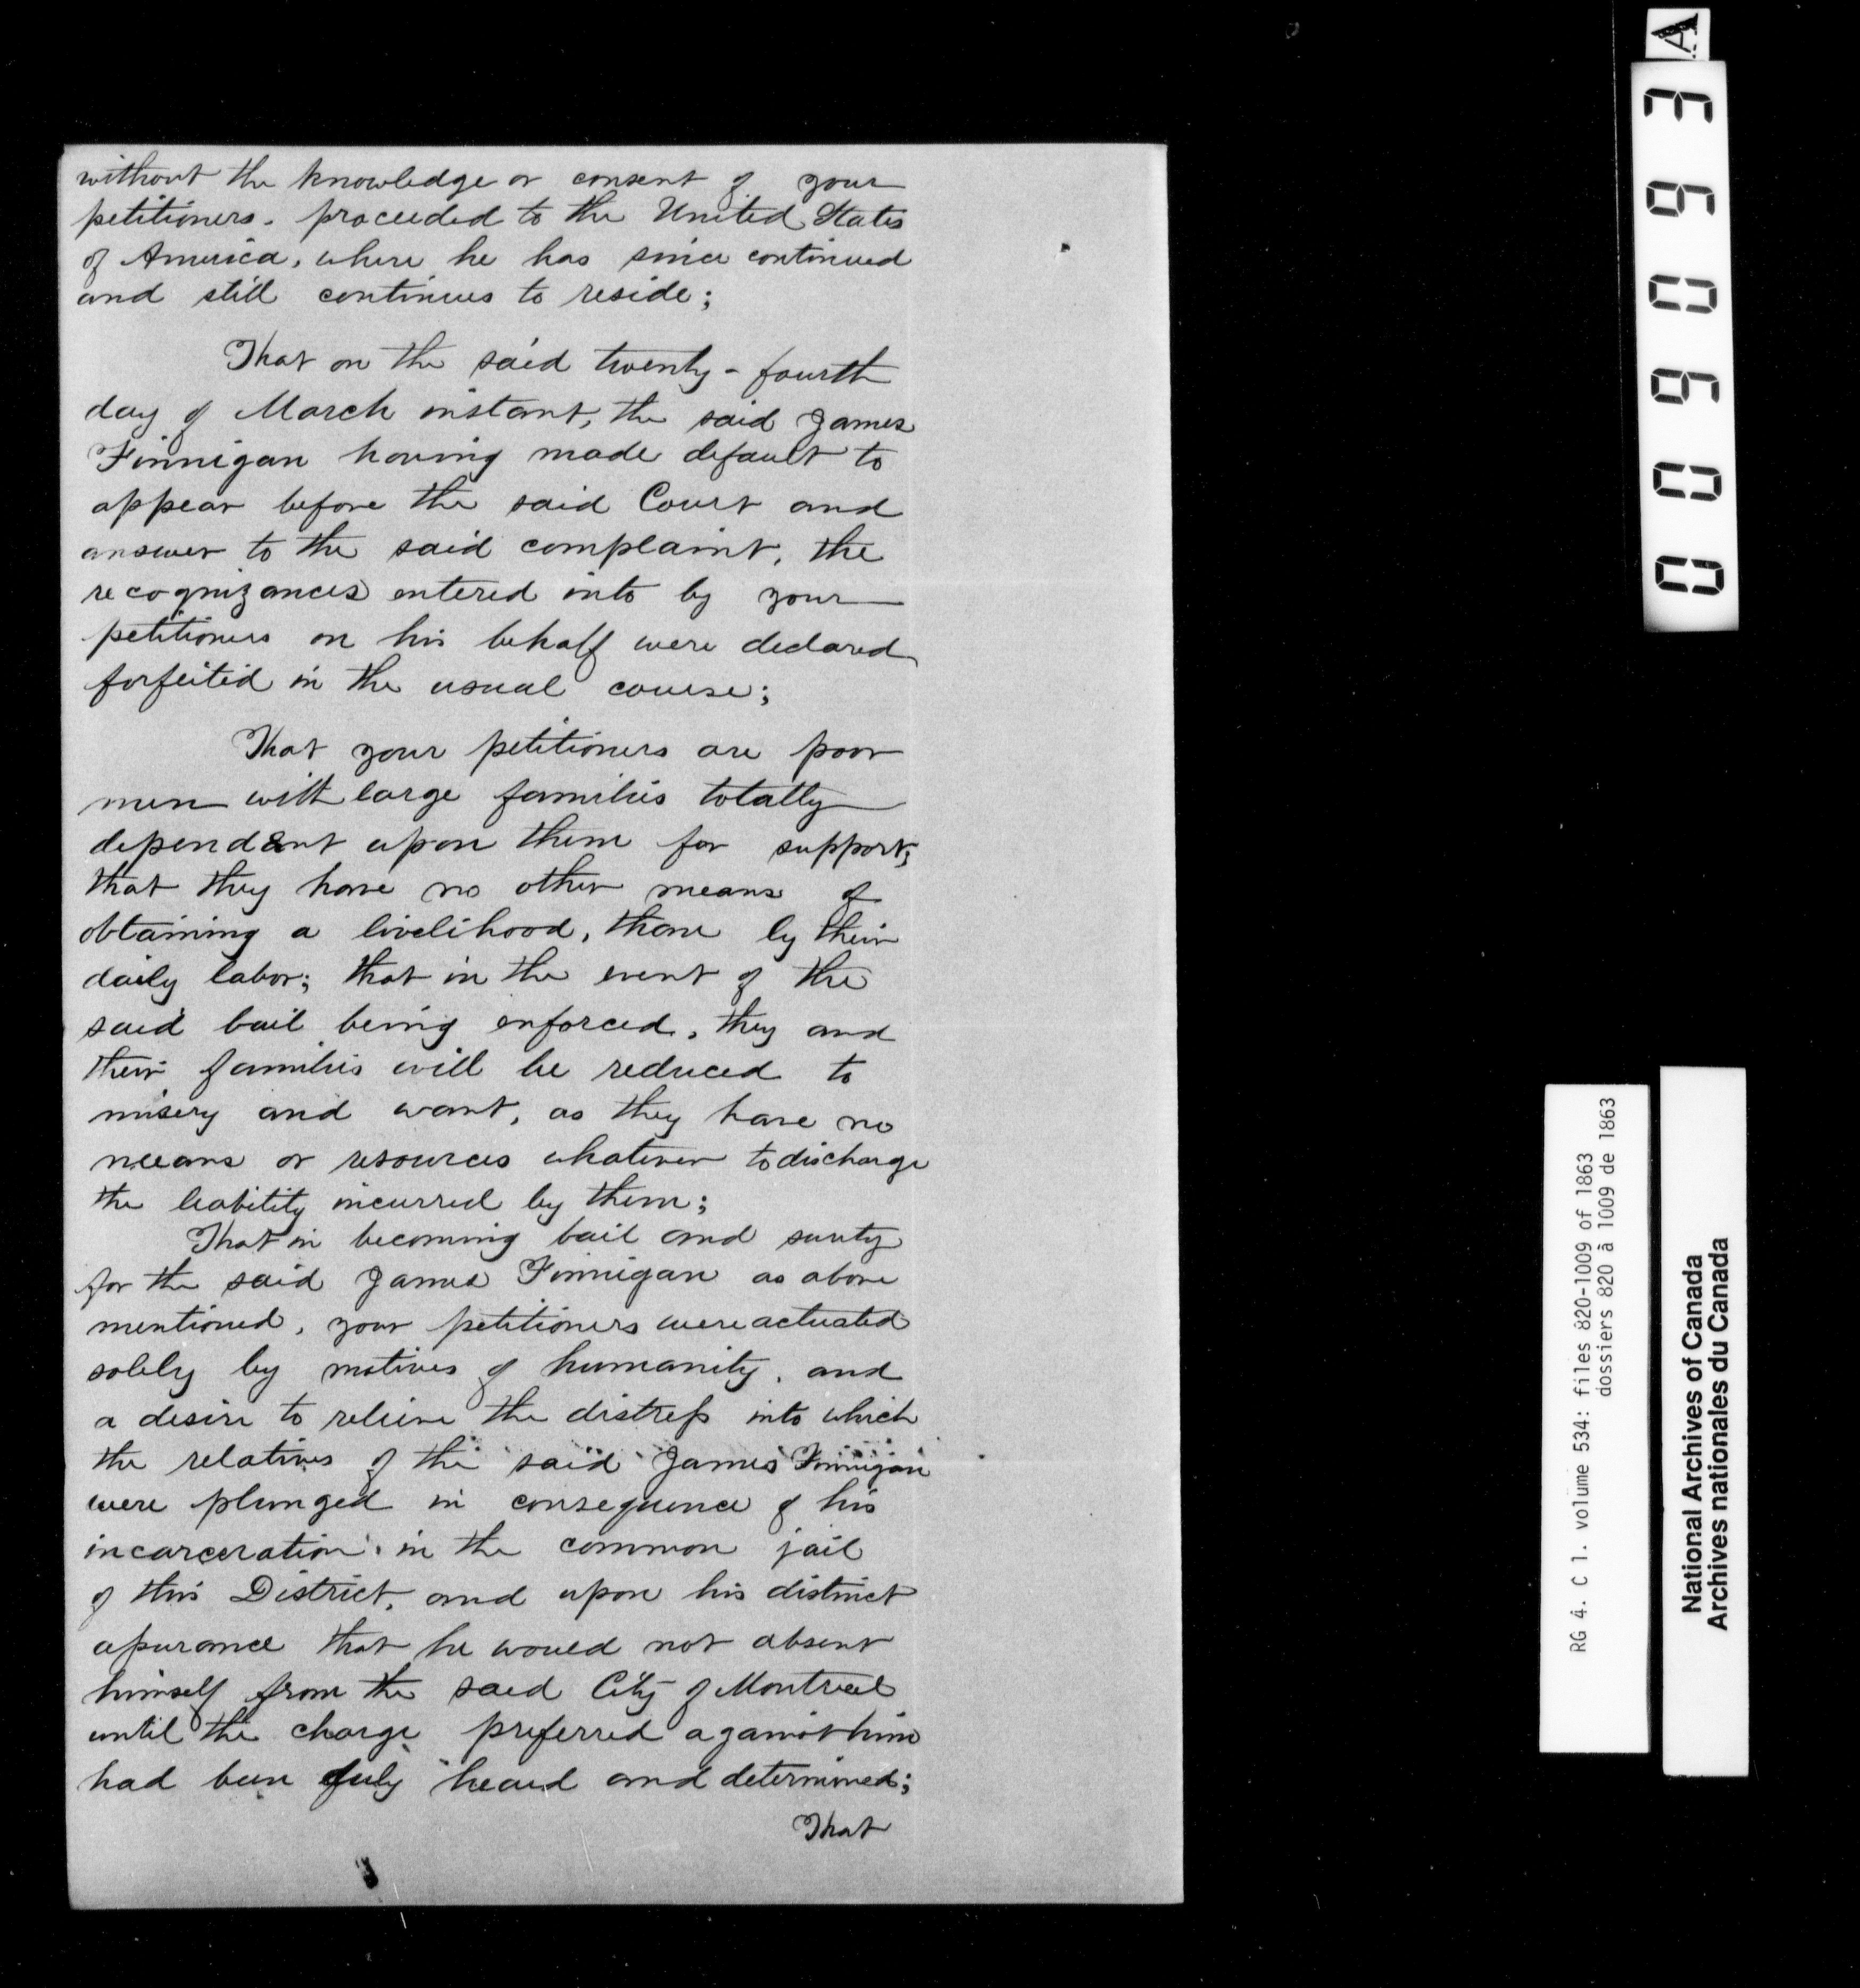 without the knowledge or consent of your
petitioners. proceeded to the United States
of America, where he has since continued
and still continues to reside;
That on the said twenty-fourth
day of March instant, the said James
Finnigan having made default to
appear before the said Court and
answer to the said complaint, the
recognizances entered into by your
petitioners on his behalf were declared
forfeited in the usual course;
That your petitioners are poor
men with large families totally
dependent upon them for support;
that they have no other means of
obtaining a livelihood, than by their
daily labor; that in the event of the
said bail being enforced, they and
their families will be reduced to
misery and want, as they have no
means or resources whatever to discharge
the liability incurred by them;
That in becoming bail and surety
for the said James Finnigan as above
mentioned, your petitioners were actuated
solely by motives of humanity, and
a desire to relieve the distress into which
the relatives of the said James Finnigan
were plunged in consequence of his
incarceration in the common jail
of this District, and upon his distinct
assurance that he would not absent
himself from the said City of Montreal
until the charge preferred against him
had been duly heard and determined;
That
009093 A
RG 4. C 1. volume 534: files 820-1009 of 1863
dossiers 820 à 1009 de 1863
National Archives of Canada
Archives nationales du Canada